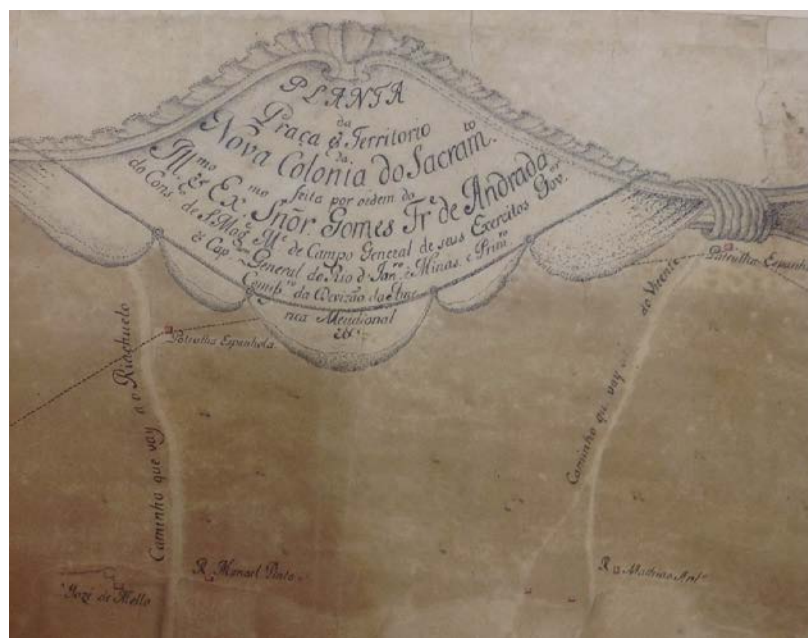 PLANTA
da
Praça & Territorio
da
Nova Colonia do Sacram.to
feita por ordem do
Ill.mo & Ex.mo Snõr. Gomes Fr.e de Andrada
do Cons.o de S. Mag.e M.e de Campo General de seus Exercitos Gov.or
& Cap.am General do Rio d Jan.ro & Minas e Prim.ro
Comiss.ro da Devizão da Ame
rica Meridional
&c.
Patrulha Espanhola
Patrulha Espanhola
Caminho que vay ao Riachuelo
Caminho qu vay ao Vicente
R. Manoel Pinto
Jozé de Mello
R